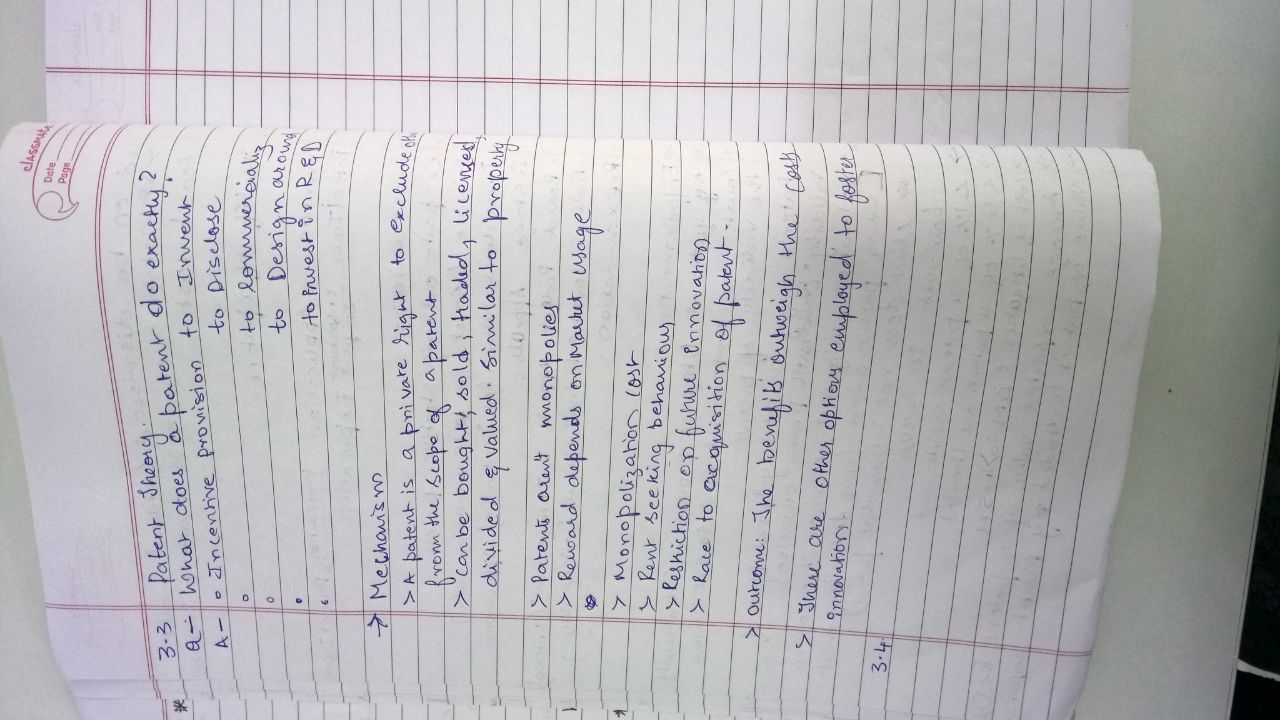 classmate
Date
Page
* 3.3 Patent Theory.
Q- What does a patent do exactly?
A- ∘ Incentive provision to Invent
∘ to Disclose
∘ to Commercializ
∘ to Design around
∘ to Invest in R&D
→ Mechanism
> A patent is a private right to exclude oth
from the scope of a patent
> can be bought, sold, traded, licensed,
divided & valued. Similar to property
> Patents arent monopolies
> Reward depends on Market usage
> Monopolization cost
> Rent seeking behaviours
> Restriction on future Innovation
> Race to acquisition of patent.
> Outcome: The benefits outweigh the cost
> There are other options employed to foster
innovation.
3.4